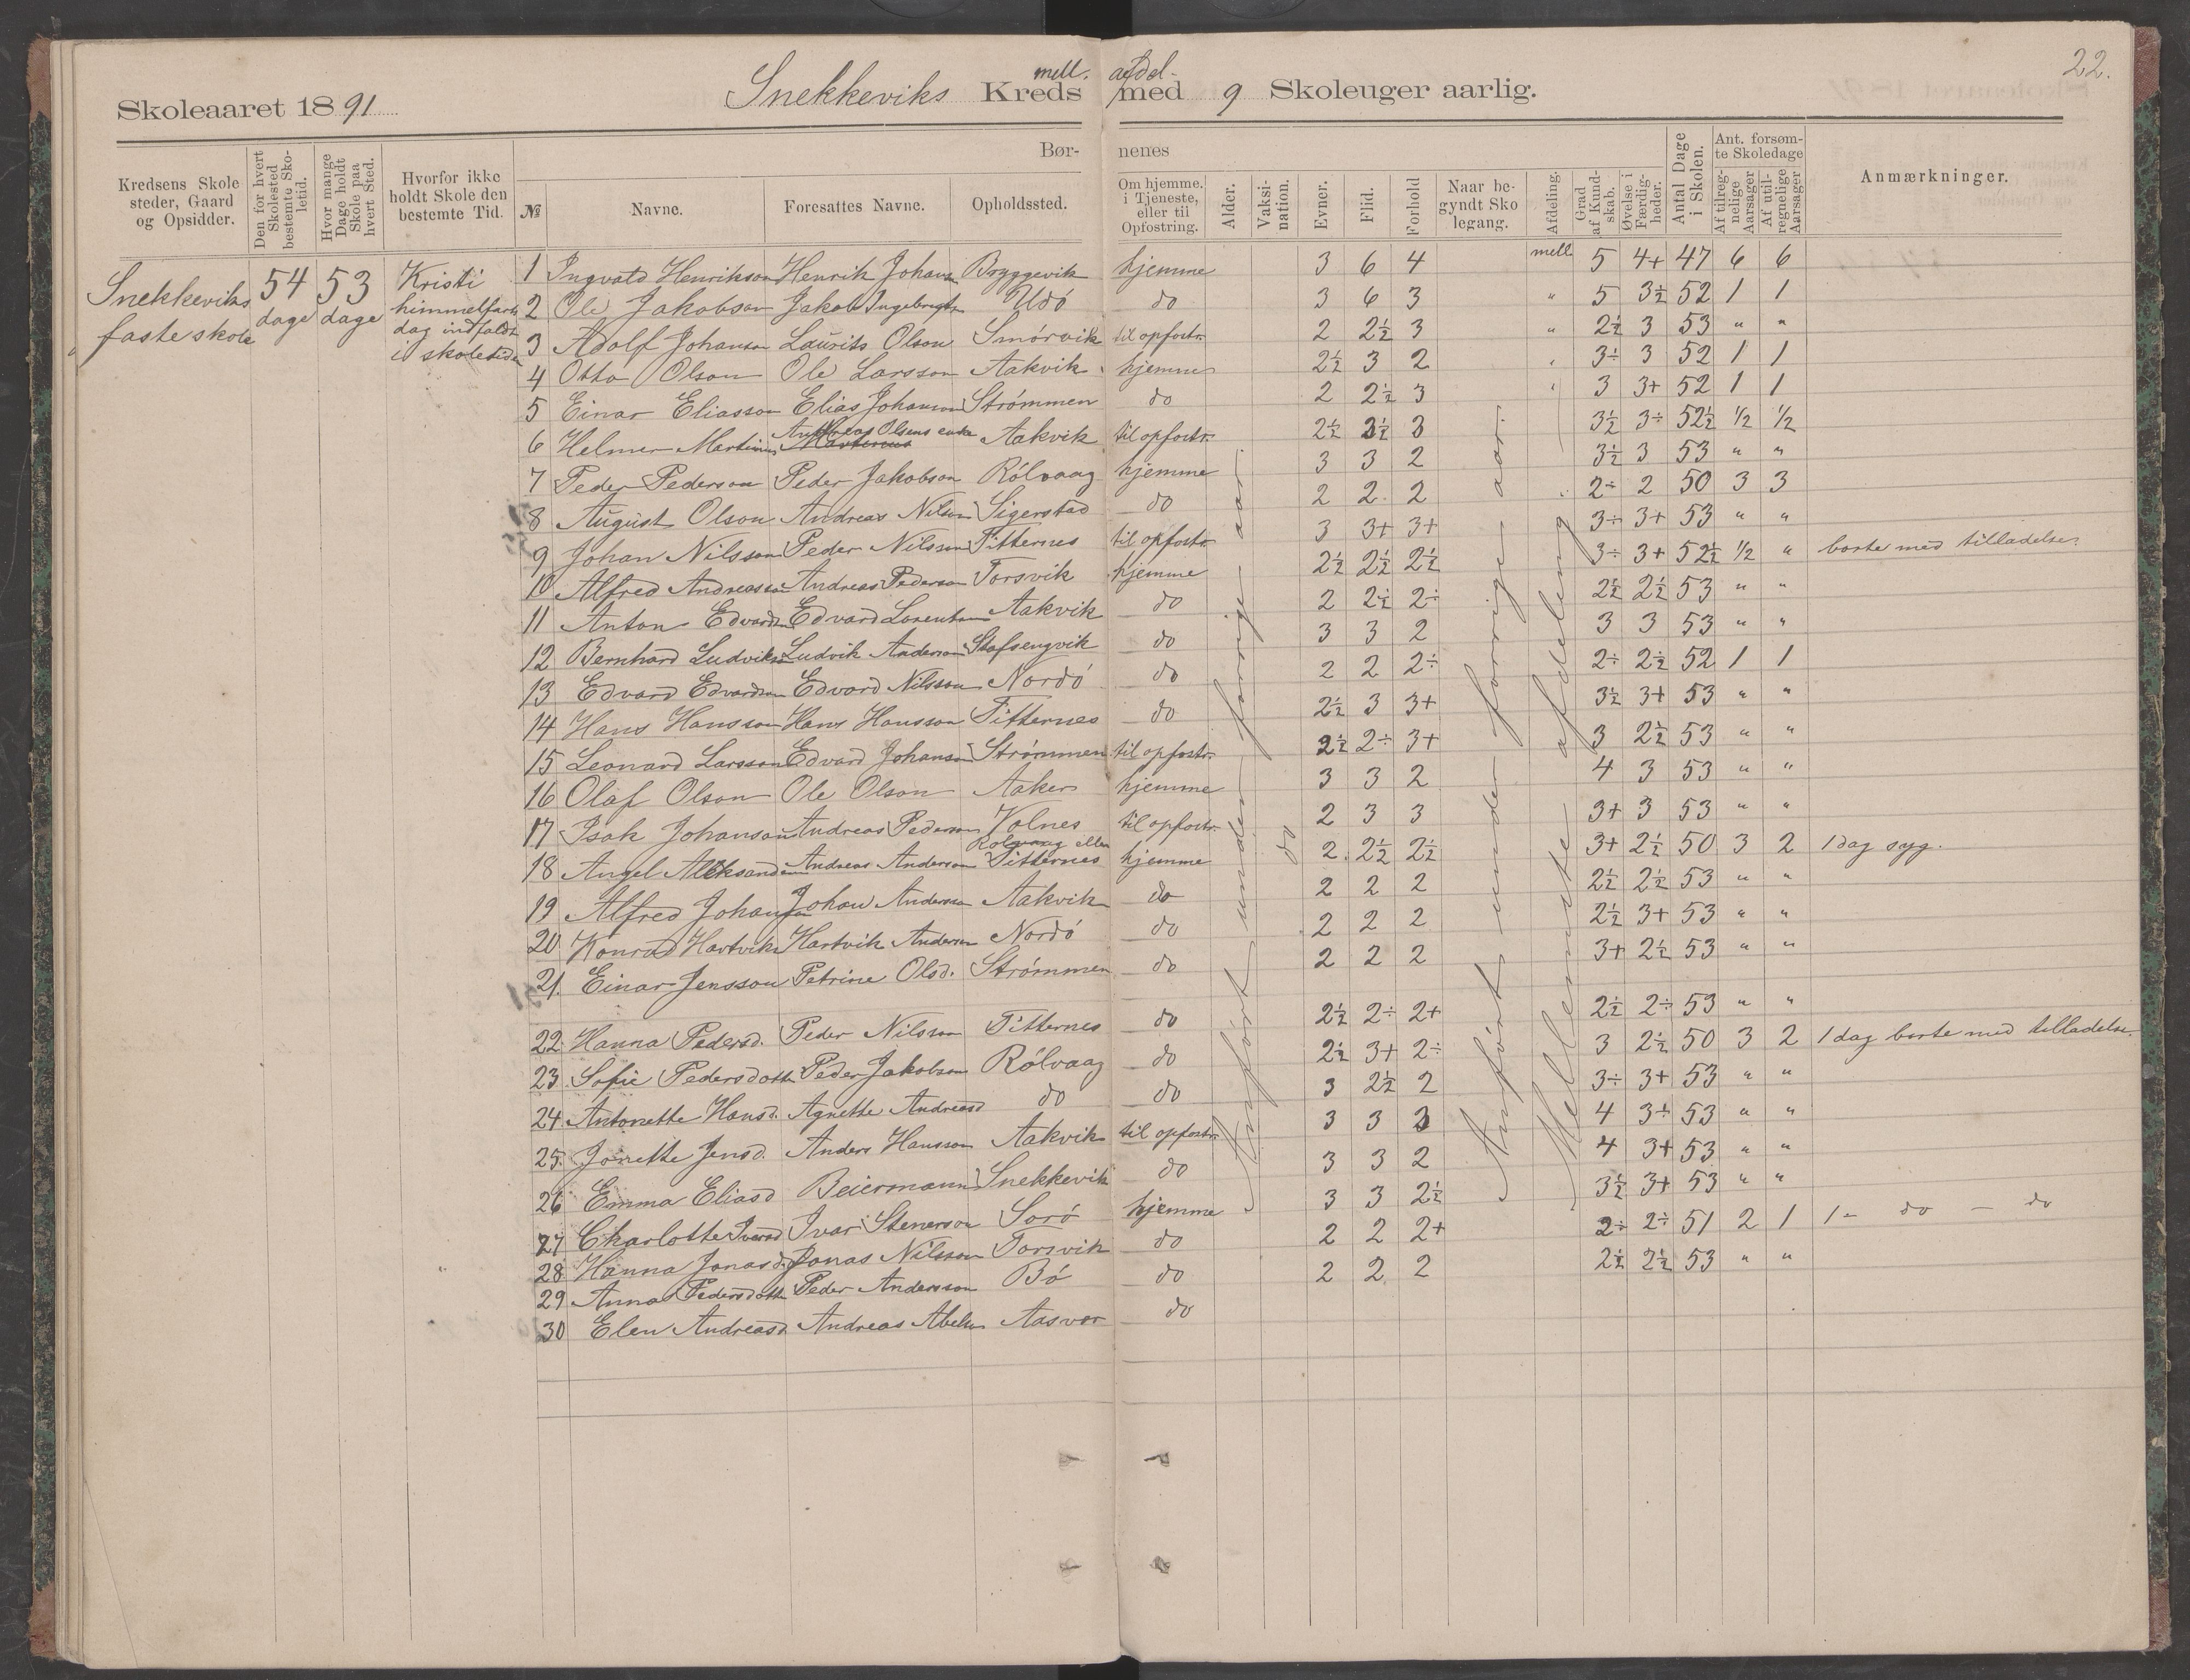 22.
Skoleaaret 1891 Snekkeviks mell. afdel. Kreds med 9 Skoleuger aarlig.
Kredsens Skolesteder, Gaard og Opsidder. | Den for hvert Skolested bestemte Skoletid. | Hvor mange Dage holdt Skole paa hvert Sted. | Hvorfor ikke holdt Skole den bestemte Tid. | Børnenes | Antal Dage i Skolen. | Ant. forsømte Skoledage | Anmærkninger.
№ | Navne. | Foresattes Navne. | Opholdssted. | Om hjemme, i Tjeneste, eller til Opfostring. | Alder. | Vaksination. | Evner. | Flid. | Forhold | Naar begyndt Skolegang. | Afdeling. | Grad af Kundskab. | Øvelse i Færdigheder. | Af tilregnelige Aarsager | Af utilregnelige Aarsager
Snekkeviks faste skole | 54 dage | 53 dage | Kristi himmelfarts dag indfaldt i skoletiden
Anført under forrige aar.
do
Anført under forrige aar.
Mellemste afdeling
1 Ingvald Henrikson Henrik Johans Bryggevik hjemme 3 6 4 mell 5 4+ 47 6 6
2 Ole Jakobson Jakob Ingebrigts Udö do 3 6 3 " 5 3½ 52 1 1
3 Adolf Johanson Laurits Olson Smörvik til opfostr. 2 2½ 3 " 2½ 3 53 " "
4 Otto Olson Ole Larsson Aakvik hjemme 2½ 3 2 " 3÷ 3 52 1 1
5 Einar Eliasson Elias Johanson Strömmen do 2 2½ 3 " 3 3+ 52 1 1
6 Helmer Martinus Andreas Olsens enke Aakvik til opfostr. 2½ 3½ 3 3½ 3÷ 52½ 1/2 1/2
7 Peder Pederson Peder Jakobson Rölvaag hjemme 3 3 2 3½ 3 53 " "
8 August Olson Andreas Nilson Sigerstad do 2 2 2 2÷ 2 50 3 3
9 Johan Nilsson Peder Nilsson Titternes til opfostr. 3 3+ 3+ 3÷ 3+ 53 " "
10 Alfred Andreasson Andreas Pederson Torsvik hjemme 2½ 2½ 2½ 3÷ 3+ 52½ 1/2 " borte med tilladelse.
11 Anton Edvards Edvard Lorentson Aakvik do 2 2½ 2÷ 2½ 2½ 53 " "
12 Bernhard Ludviks Ludvik Anderson Stafsengvik do 3 3 2 3 3 53 " "
13 Edvard Edvardson Edvard Nilsson Nordö do 2 2 2÷ 2÷ 2½ 52 1 1
14 Hans Hansson Hans Hansson Titternes do 2½ 3 3+ 3½ 3+ 53 " "
15 Leonard Larsson Edvard Johanson Strömmen til opfostr. 2½ 2÷ 3+ 3 2½ 53 " "
16 Olaf Olson Ole Olson Aaker hjemme 3 3 2 4 3 53 " "
17 Isak Johanson Andreas Pederson Volnes til opfostr. 2 3 3 3+ 3 53 " "
18 Angel Aleksanderson Andreas Anderson Rölvaag eller Titternes hjemme 2 2½ 2½ 3+ 2½ 50 3 2 1 dag syg.
19 Alfred Johanson Johan Anderson Aakvik do 2 2 2 2½ 2½ 53 " "
20 Konrad Hartviks Hartvik Anderson Nordö do 2 2 2 2½ 3+ 53 " "
21. Einar Jensson Petrine Olsd. Strömmen do 2 2 2 3+ 2½ 53 " "
22 Hanna Pedersd. Peder Nilsson Titternes do 2½ 2÷ 2+ 2½ 2÷ 53 " "
23 Sofie Pedersdotter Peder Jakobson Rölvaag do 2½ 3+ 2÷ 3 2½ 50 3 2 1 dag borte med tilladelse.
24 Antonette Hansd. Agnette Andreasd do do 3 2½ 2 3÷ 3+ 53 " "
25. Jonette Jensd. Anders Hansson Aakvik til opfostr. 3 3 3 4 3÷ 53 " "
26 Emma Eliasd Beiermann Snekkevik do 3 3 2 4 3+ 53 " "
27 Charlotte Iversd Ivar Stenerson Sorö hjemme 3 3 2½ 3½ 3+ 53 " "
28 Hanna Jonasd. Jonas Nilsson Torsvik do 2 2 2+ 2÷ 2÷ 51 2 1 1 - do - do
29 Anna Pedersdotter Peder Andersson Bö do 2 2 2 2½ 2½ 53 " "
30 Elen Andreasd. Andreas Abelson Aasvær do